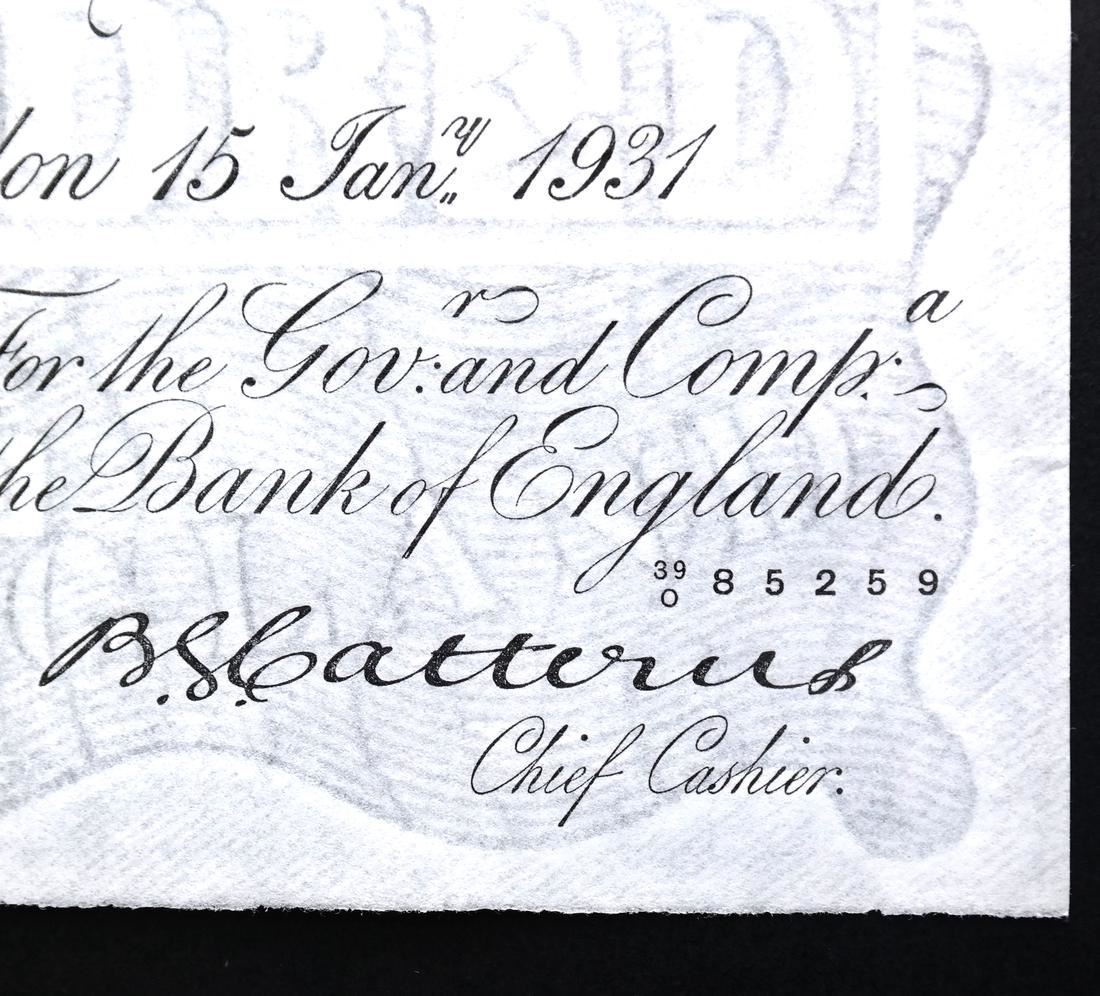 lon 15 Janʸ 1931
For the Gov:ʳ and Comp:ᵃ
the Bank of England.
39/O 85259
B.G.Catterns
Chief Cashier.